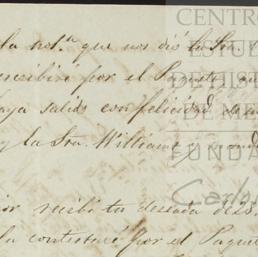 la not.ª que nos dió la Sra.
escribiré por el Paquete
haya salido con felicidad de
y la Sra. Williams y
recibi tu deseada
la contestaré por el Paquet
CENTRO
ESTUD
DE HIST
DE M
FUNDA
Carlos